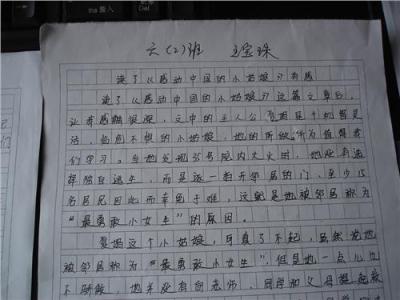 六(2)班 王宝珠
读了《感动中国的小姑娘》有感
读了《感动中国的小姑娘》这篇文章后,
让我感触很深,文中的主人公是个机智灵
活,临危不惧的小姑娘,她的所做所为值得我
们学习。当她发现邻居院内大火时,她没有选
择独自逃生,而是逐一敲开邻居的门,至少15
名居民因此而幸免于难,这就是她被邻居称为
“最勇敢小女生”的原因。
这个小姑娘,可真了不起,虽然她
被邻居称为“最勇敢小女生”,但是她一点儿也
不骄傲,她并没有向老师、同学和父母提起救